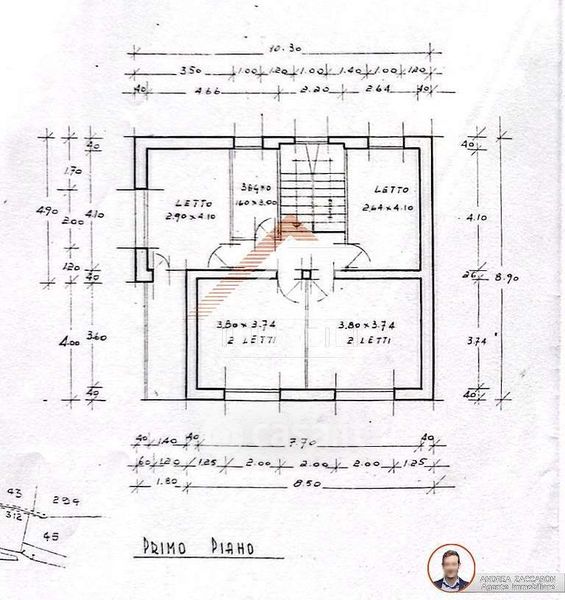 10.30
3.50 1.00 1.20 1.00 1.40 1.00 1.20
40 4.66 2.20 2.64 40
40
1.70
4.90
2.00
4.10
1.20
40
4.00
3.60
40
LETTO
2.90 x 4.10
BAGNO
1.60 x 3.00
LETTO
2.64 x 4.10
3.80 x 3.74
2 LETTI
3.80 x 3.74
2 LETTI
40
4.10
26
8.90
3.74
40
40 1.40 40 7.70 40
60 1.20 1.25 2.00 2.00 2.00 1.25
1.80 8.50
43 294
312
45
PRIMO PIANO
ANDREA ZACCARON
Agente Immobiliare